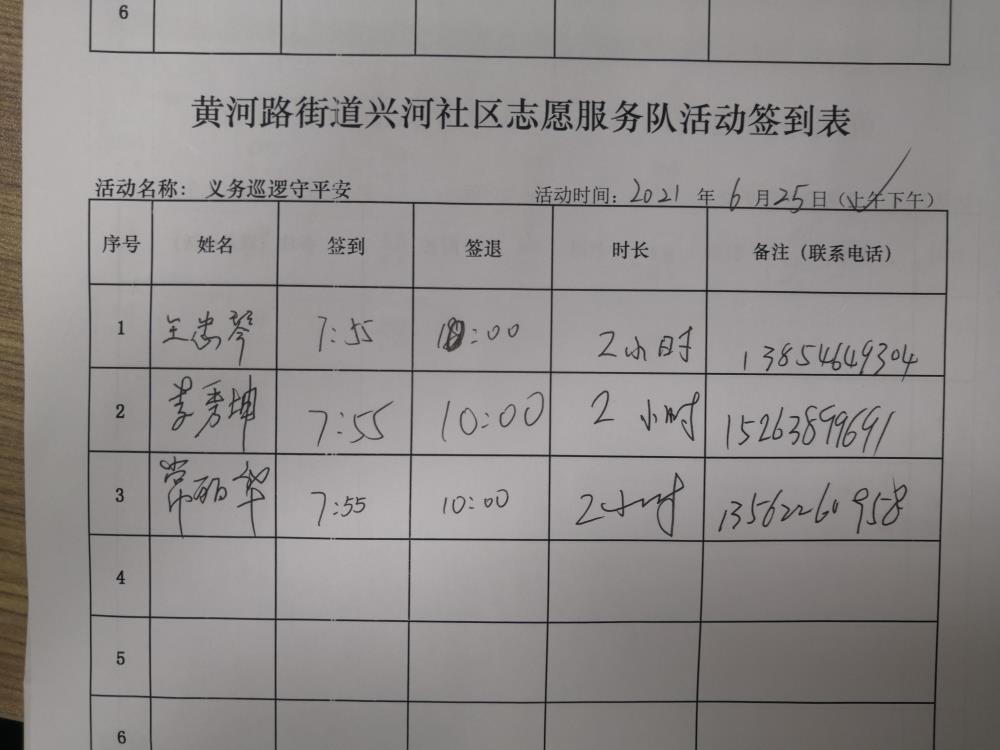 6
黄河路街道兴河社区志愿服务队活动签到表
活动名称：义务巡逻守平安 活动时间：2021 年 6 月 25 日（上午下午）
序号 姓名 签到 签退 时长 备注（联系电话）
1 7:55 10:00 2小时 13854649304
2 李秀坤 7:55 10:00 2 小时 15263899691
3 常丽华 7:55 10:00 2小时 13562260958
4
5
6